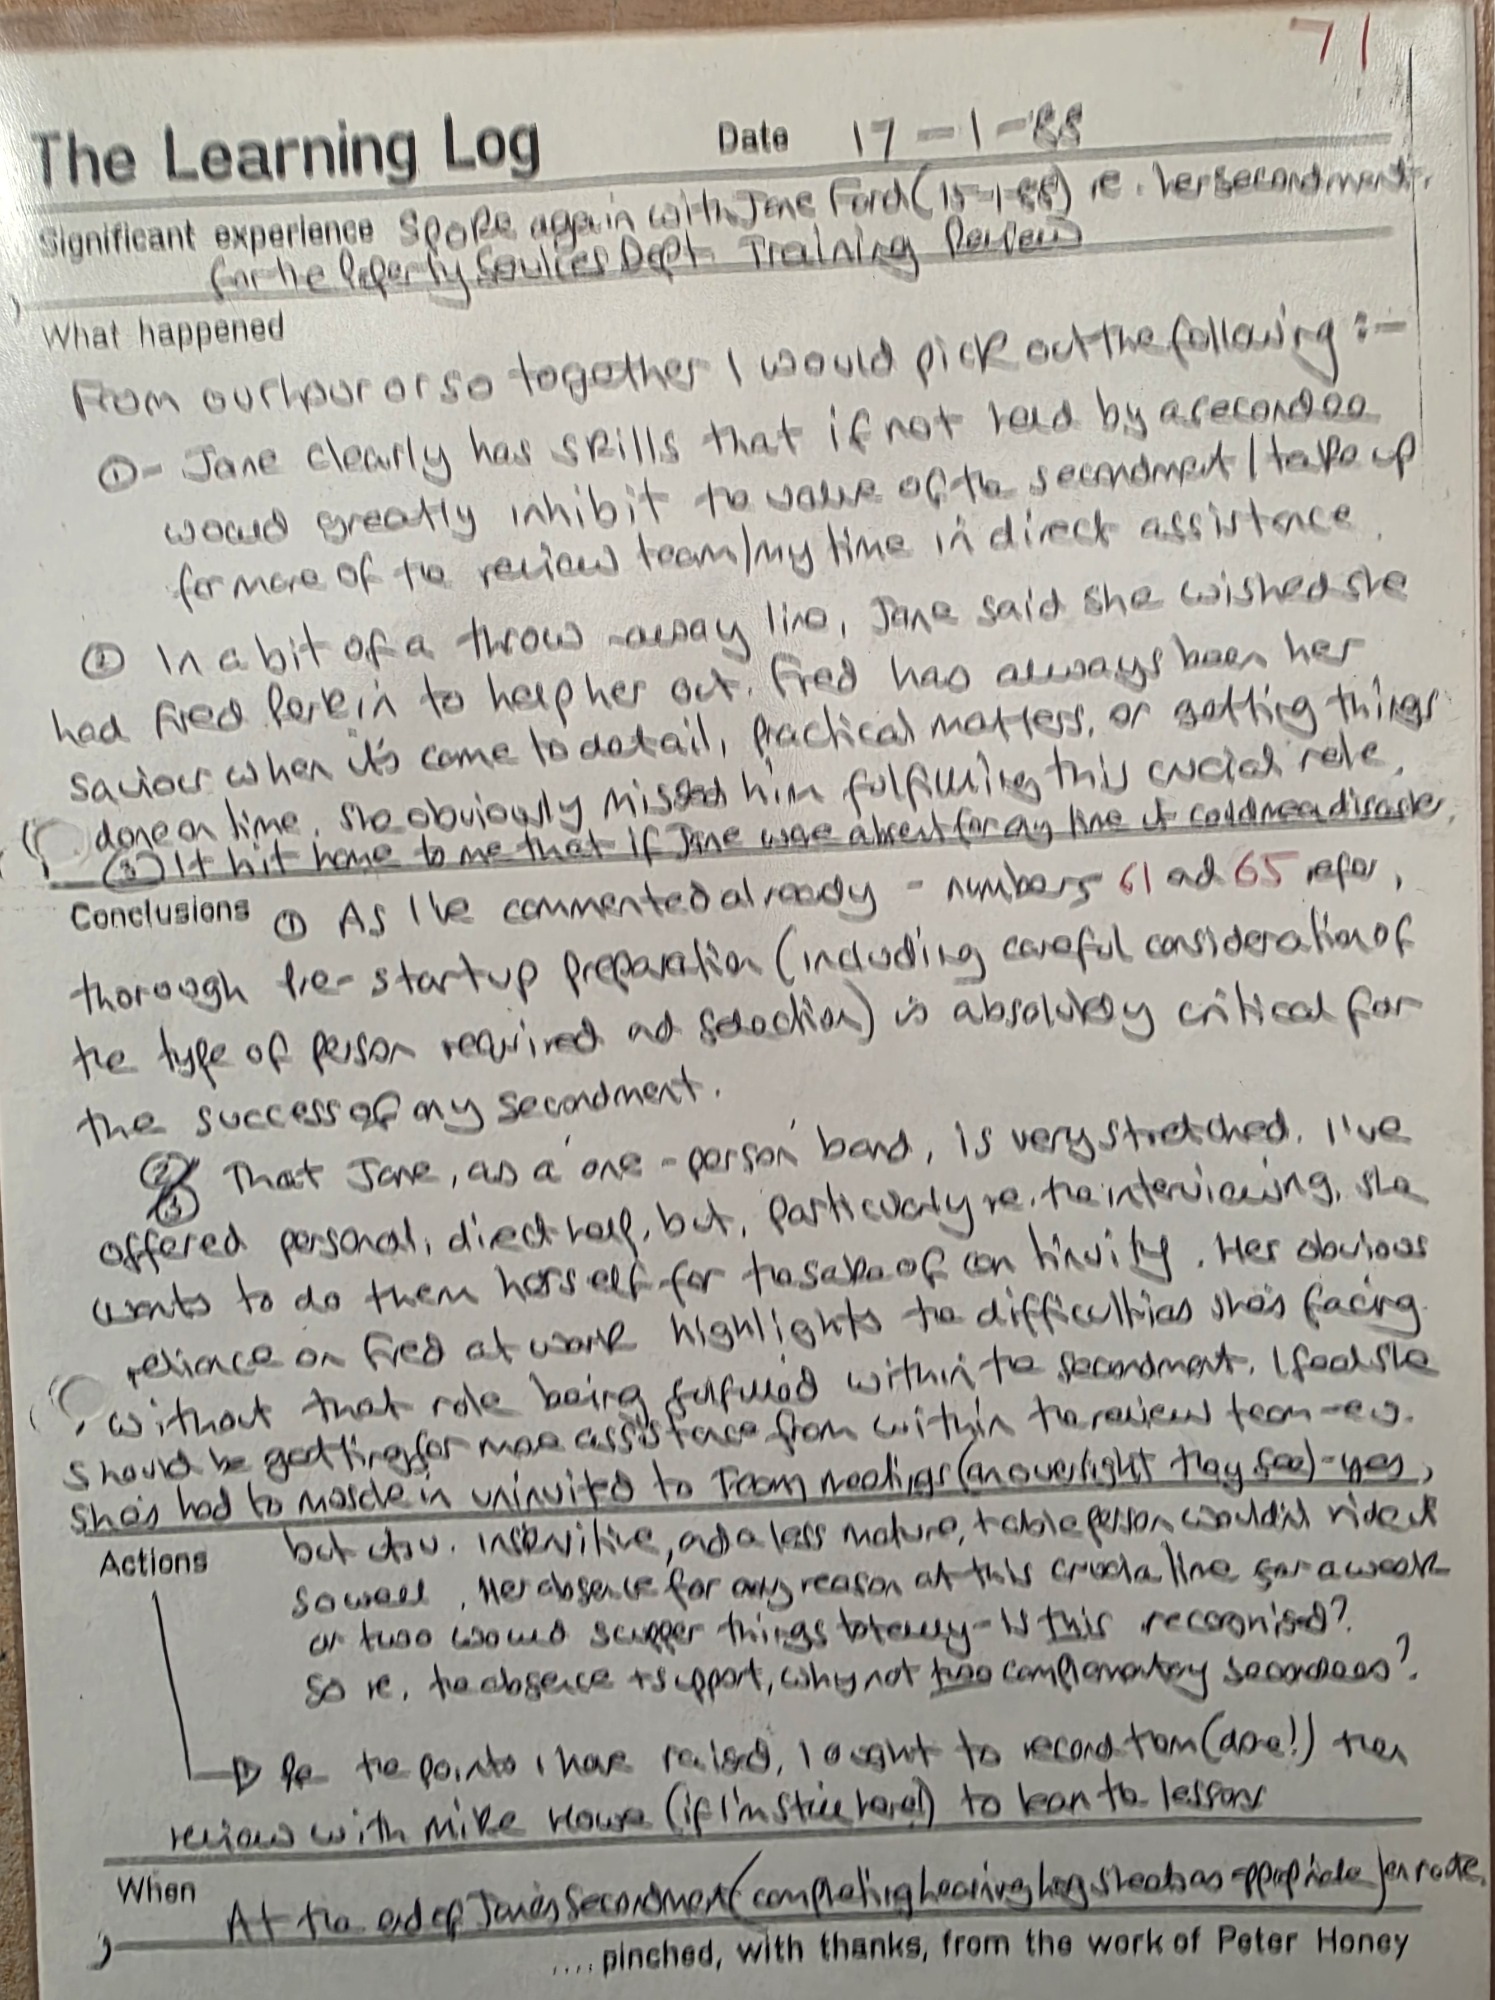 71
The Learning Log Date 17-1-88
Significant experience Spoke again with Jane Ford (15-1-88) re. her secondment
for the Property Services Dept. Training Review
What happened
From our hour or so together I would pick out the following :-
①- Jane clearly has skills that if not held by a secondee
would greatly inhibit the value of the secondment / take up
far more of the review team/my time in direct assistance.
② In a bit of a throw-away line, Jane said she wished she
had Fred Perkin to help her out. Fred has always been her
saviour when it's come to detail, practical matters, or getting things
done on time. She obviously missed him fulfilling this crucial role.
③ It hit home to me that if Jane were absent for any time it could mean disaster.
Conclusions ① As I've commented already - numbers 61 and 65 refer,
thorough pre-startup preparation (including careful consideration of
the type of person required and selection) is absolutely critical for
the success of any secondment.
②/③ That Jane, as a 'one-person' band, is very stretched. I've
offered personal, direct help, but, particularly re. the interviewing, she
wants to do them herself for the sake of continuity. Her obvious
reliance on Fred at work highlights the difficulties she's facing
without that role being fulfilled within the secondment. I feel she
should be getting far more assistance from within the review team - e.g.
she's had to muscle in uninvited to Team meetings (an oversight they say) - yes,
but insensitive, and a less mature, + able person wouldn't ride it
Actions
so well. Her absence for any reason at this crucial time for a week
or two would scupper things totally - Is this recognised?
So re. the absence + support, why not two complementary secondees?
Re the points I have raised, I ought to record them (done!) then
review with Mike Howe (if I'm still here!) to learn the lessons
When At the end of Jane's Secondment (completing learning log sheets as appropriate) en route.
.... pinched, with thanks, from the work of Peter Honey